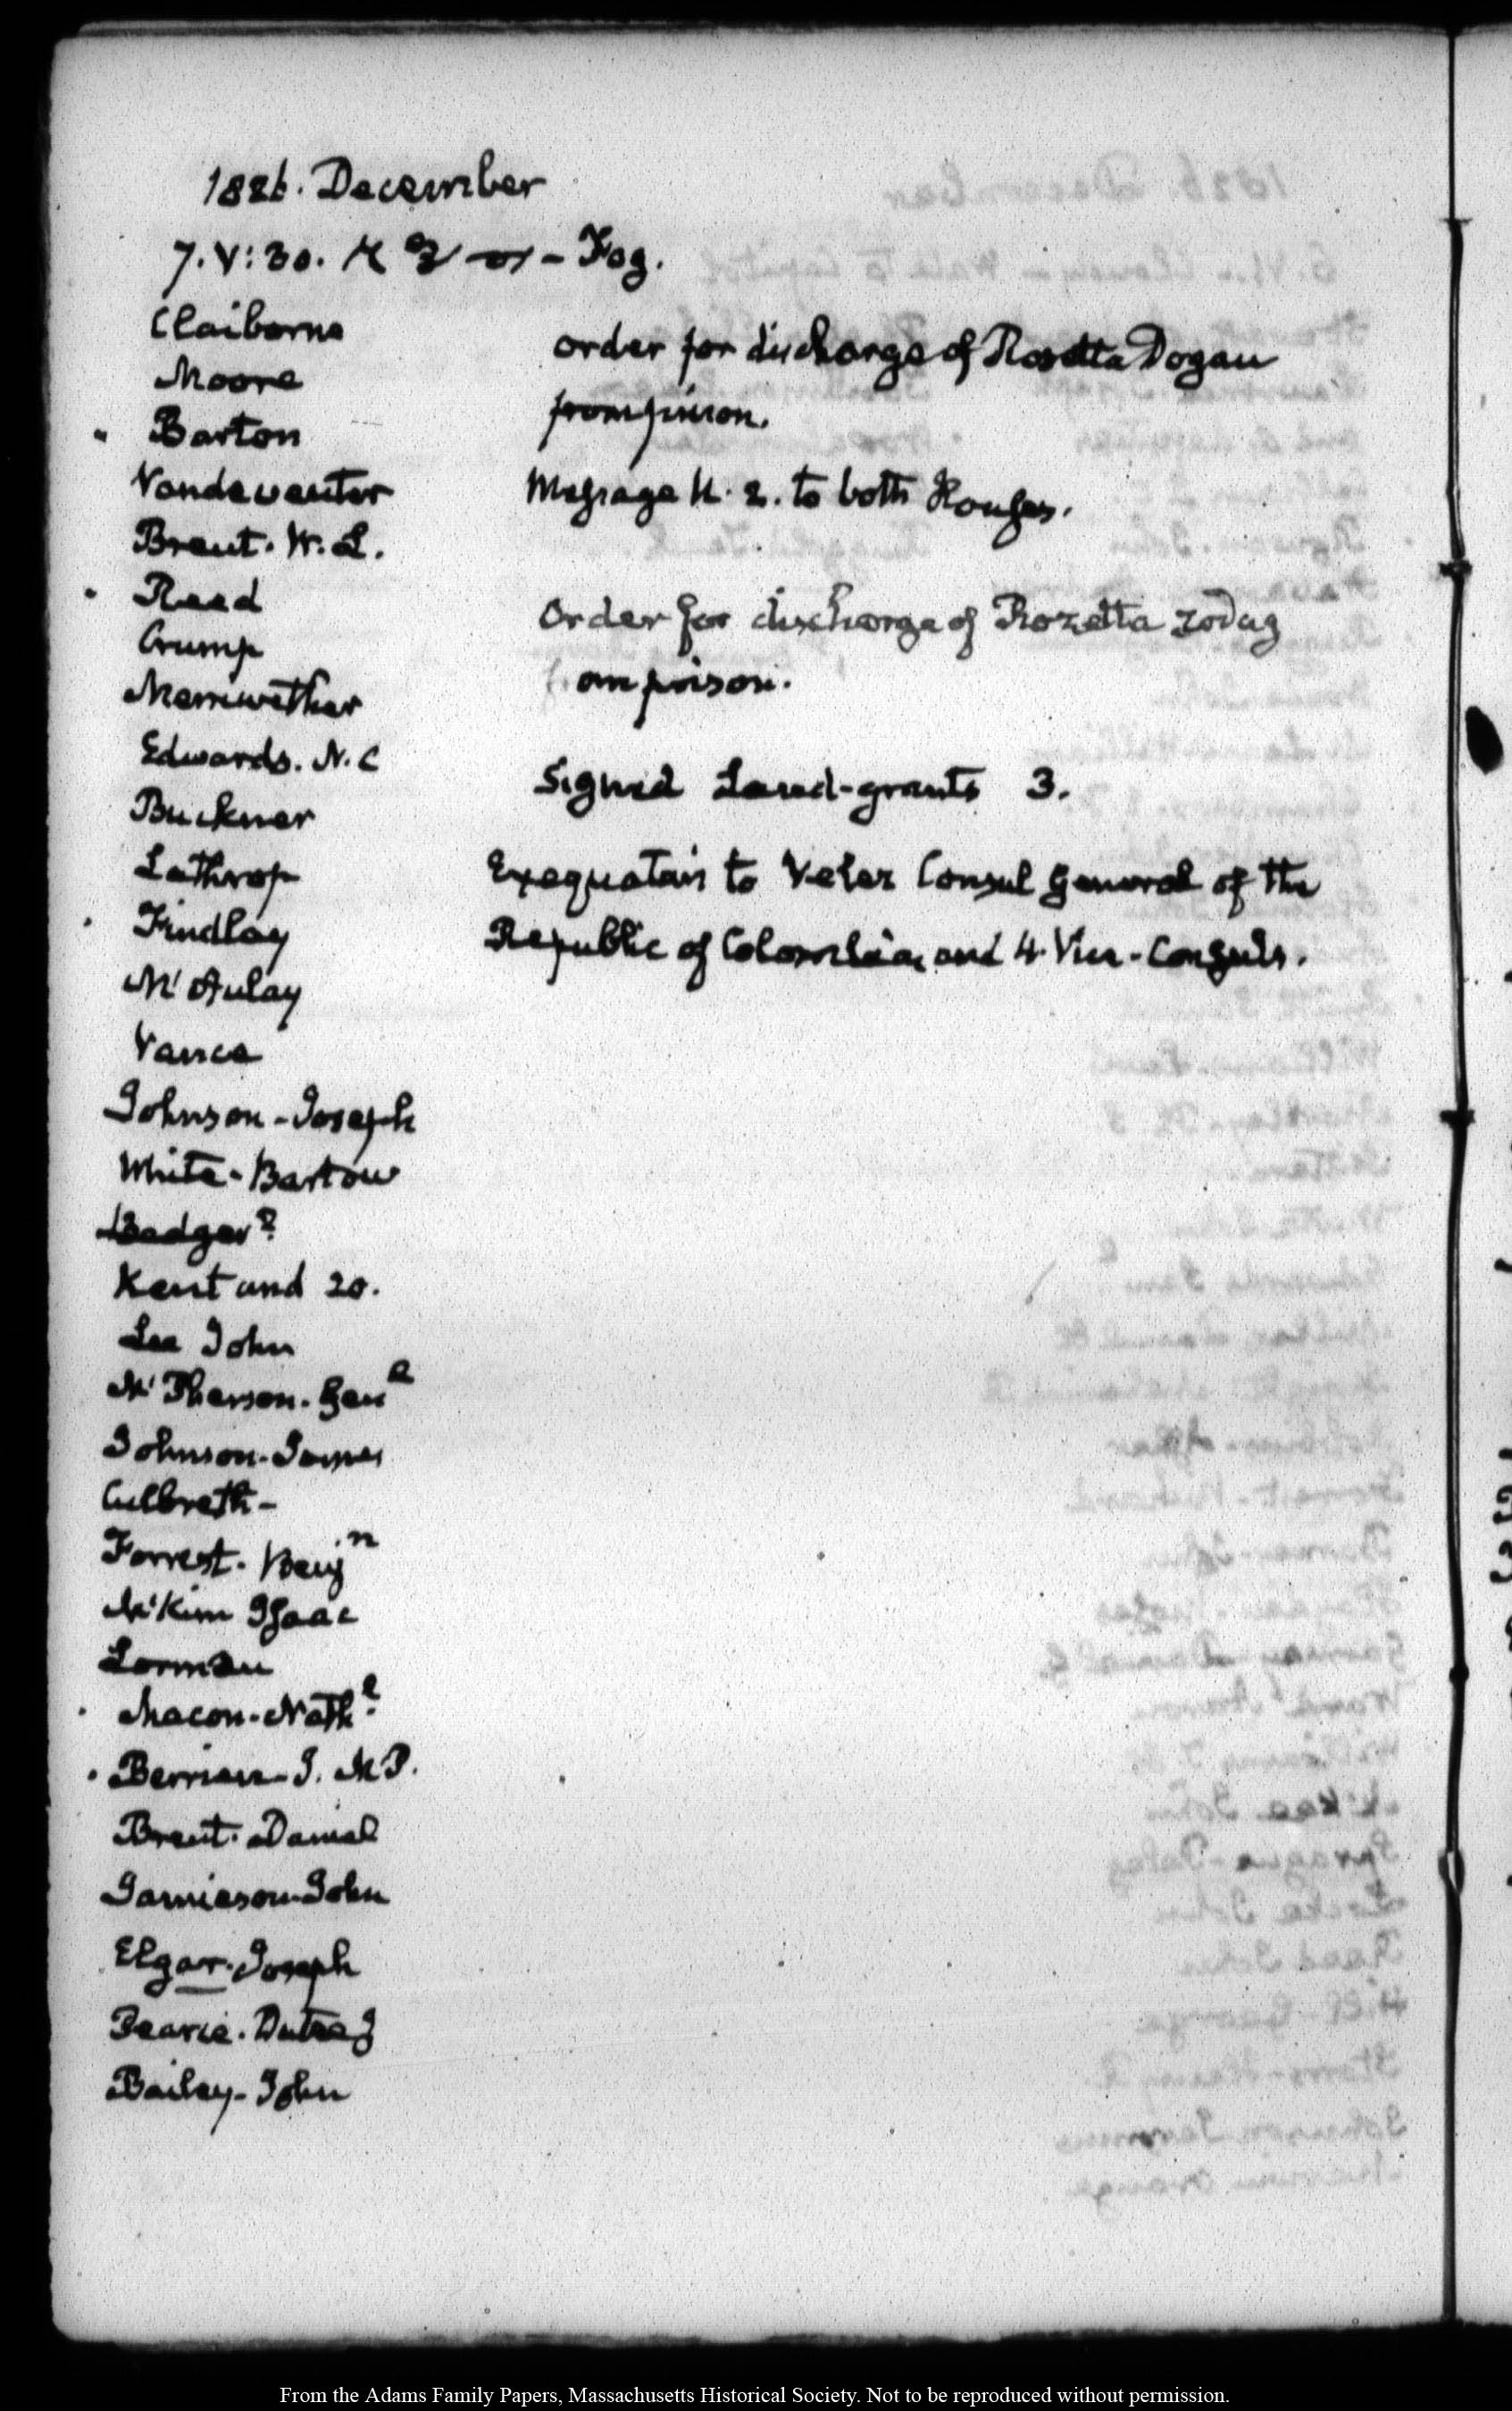 1826. December
7. V:30. — Fog.
Claiborne
Moore
Barton
Vandeventer
Brent. W. L.
Reed
Crump
Merriwether
Edwards. N. C
Buckner
Lathrop
Findlay
McAulay
Vance
Johnson - Joseph
White - Bartow
Badger?
Kent and 20.
Lee John
McPherson. Genl
Johnson - James
Culbreth -
Forrest. Benjn
McKim Isaac
Lorman
Macon - Nathl
Berrien - J. McP.
Brent. Daniel
Jamieson - John
Elgar. Joseph
Pearce. Dutee J
Bailey - John
order for discharge of Rosetta Dogan
from prison.
Message N. 2. to both Houses.
Order for discharge of Rozetta
prison.
Signed Land-grants 3.
Exequaturs to Velez Consul General of the
Republic of Colombia, and 4 Vice-Consuls.
From the Adams Family Papers, Massachusetts Historical Society. Not to be reproduced without permission.